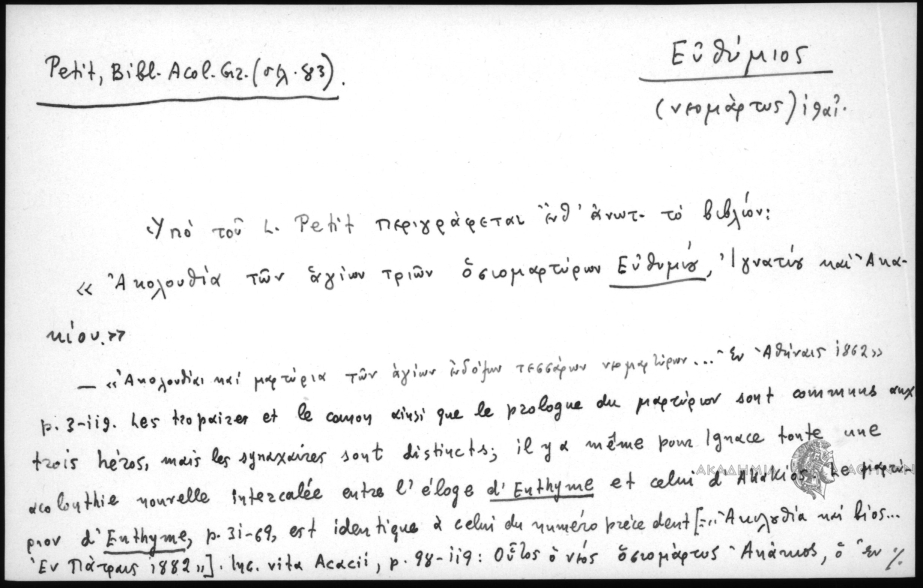 Petit, Bibl. Acol. Gr. (σελ. 83).
Εὐθύμιος
(νεομάρτυς) ιθαʹ.
Ὑπὸ τοῦ L. Petit περιγράφεται ἔνθ' ἀνωτ. τὸ βιβλίον:
« Ἀκολουθία τῶν ἁγίων τριῶν ὁσιομαρτύρων Εὐθυμίου, Ἰγνατίου καὶ Ἀκα-
κίου.»
— «Ἀκολουθίαι καὶ μαρτύρια τῶν ἁγίων ἐνδόξων τεσσάρων νεομαρτύρων... Ἐν Ἀθήναις 1862»
p. 3-119. Les tropaires et le canon ainsi que le prologue du μαρτύριον sont communs aux
trois héros, mais les synaxaires sont distincts; il y a même pour Ignace toute une
acolouthie nouvelle intercalée entre l'éloge d'Euthyme et celui d'Akakios. Le μαρτύ-
ριον d'Euthyme, p. 31-69, est identique à celui du numéro précedent [=«Ἀκολουθία καὶ βίος...
Ἐν Πάτραις 1882»]. Inc. vita Acacii, p. 98-119: Οὗτος ὁ νέος ὁσιομάρτυς Ἀκάκιος, ὁ ἐν ./.
ΑΚΑΔΗΜΙΑ ΑΘΗΝΩΝ